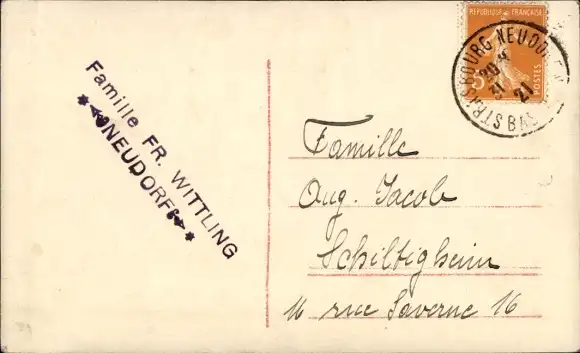 Famille FR. WITTLING
NEUDORF
REPUBLIQUE FRANÇAISE
POSTES
STRASBOURG NEUDORF
31
21
BAS
Famille
Aug. Jacob
Schiltigheim
16 rue Saverne 16